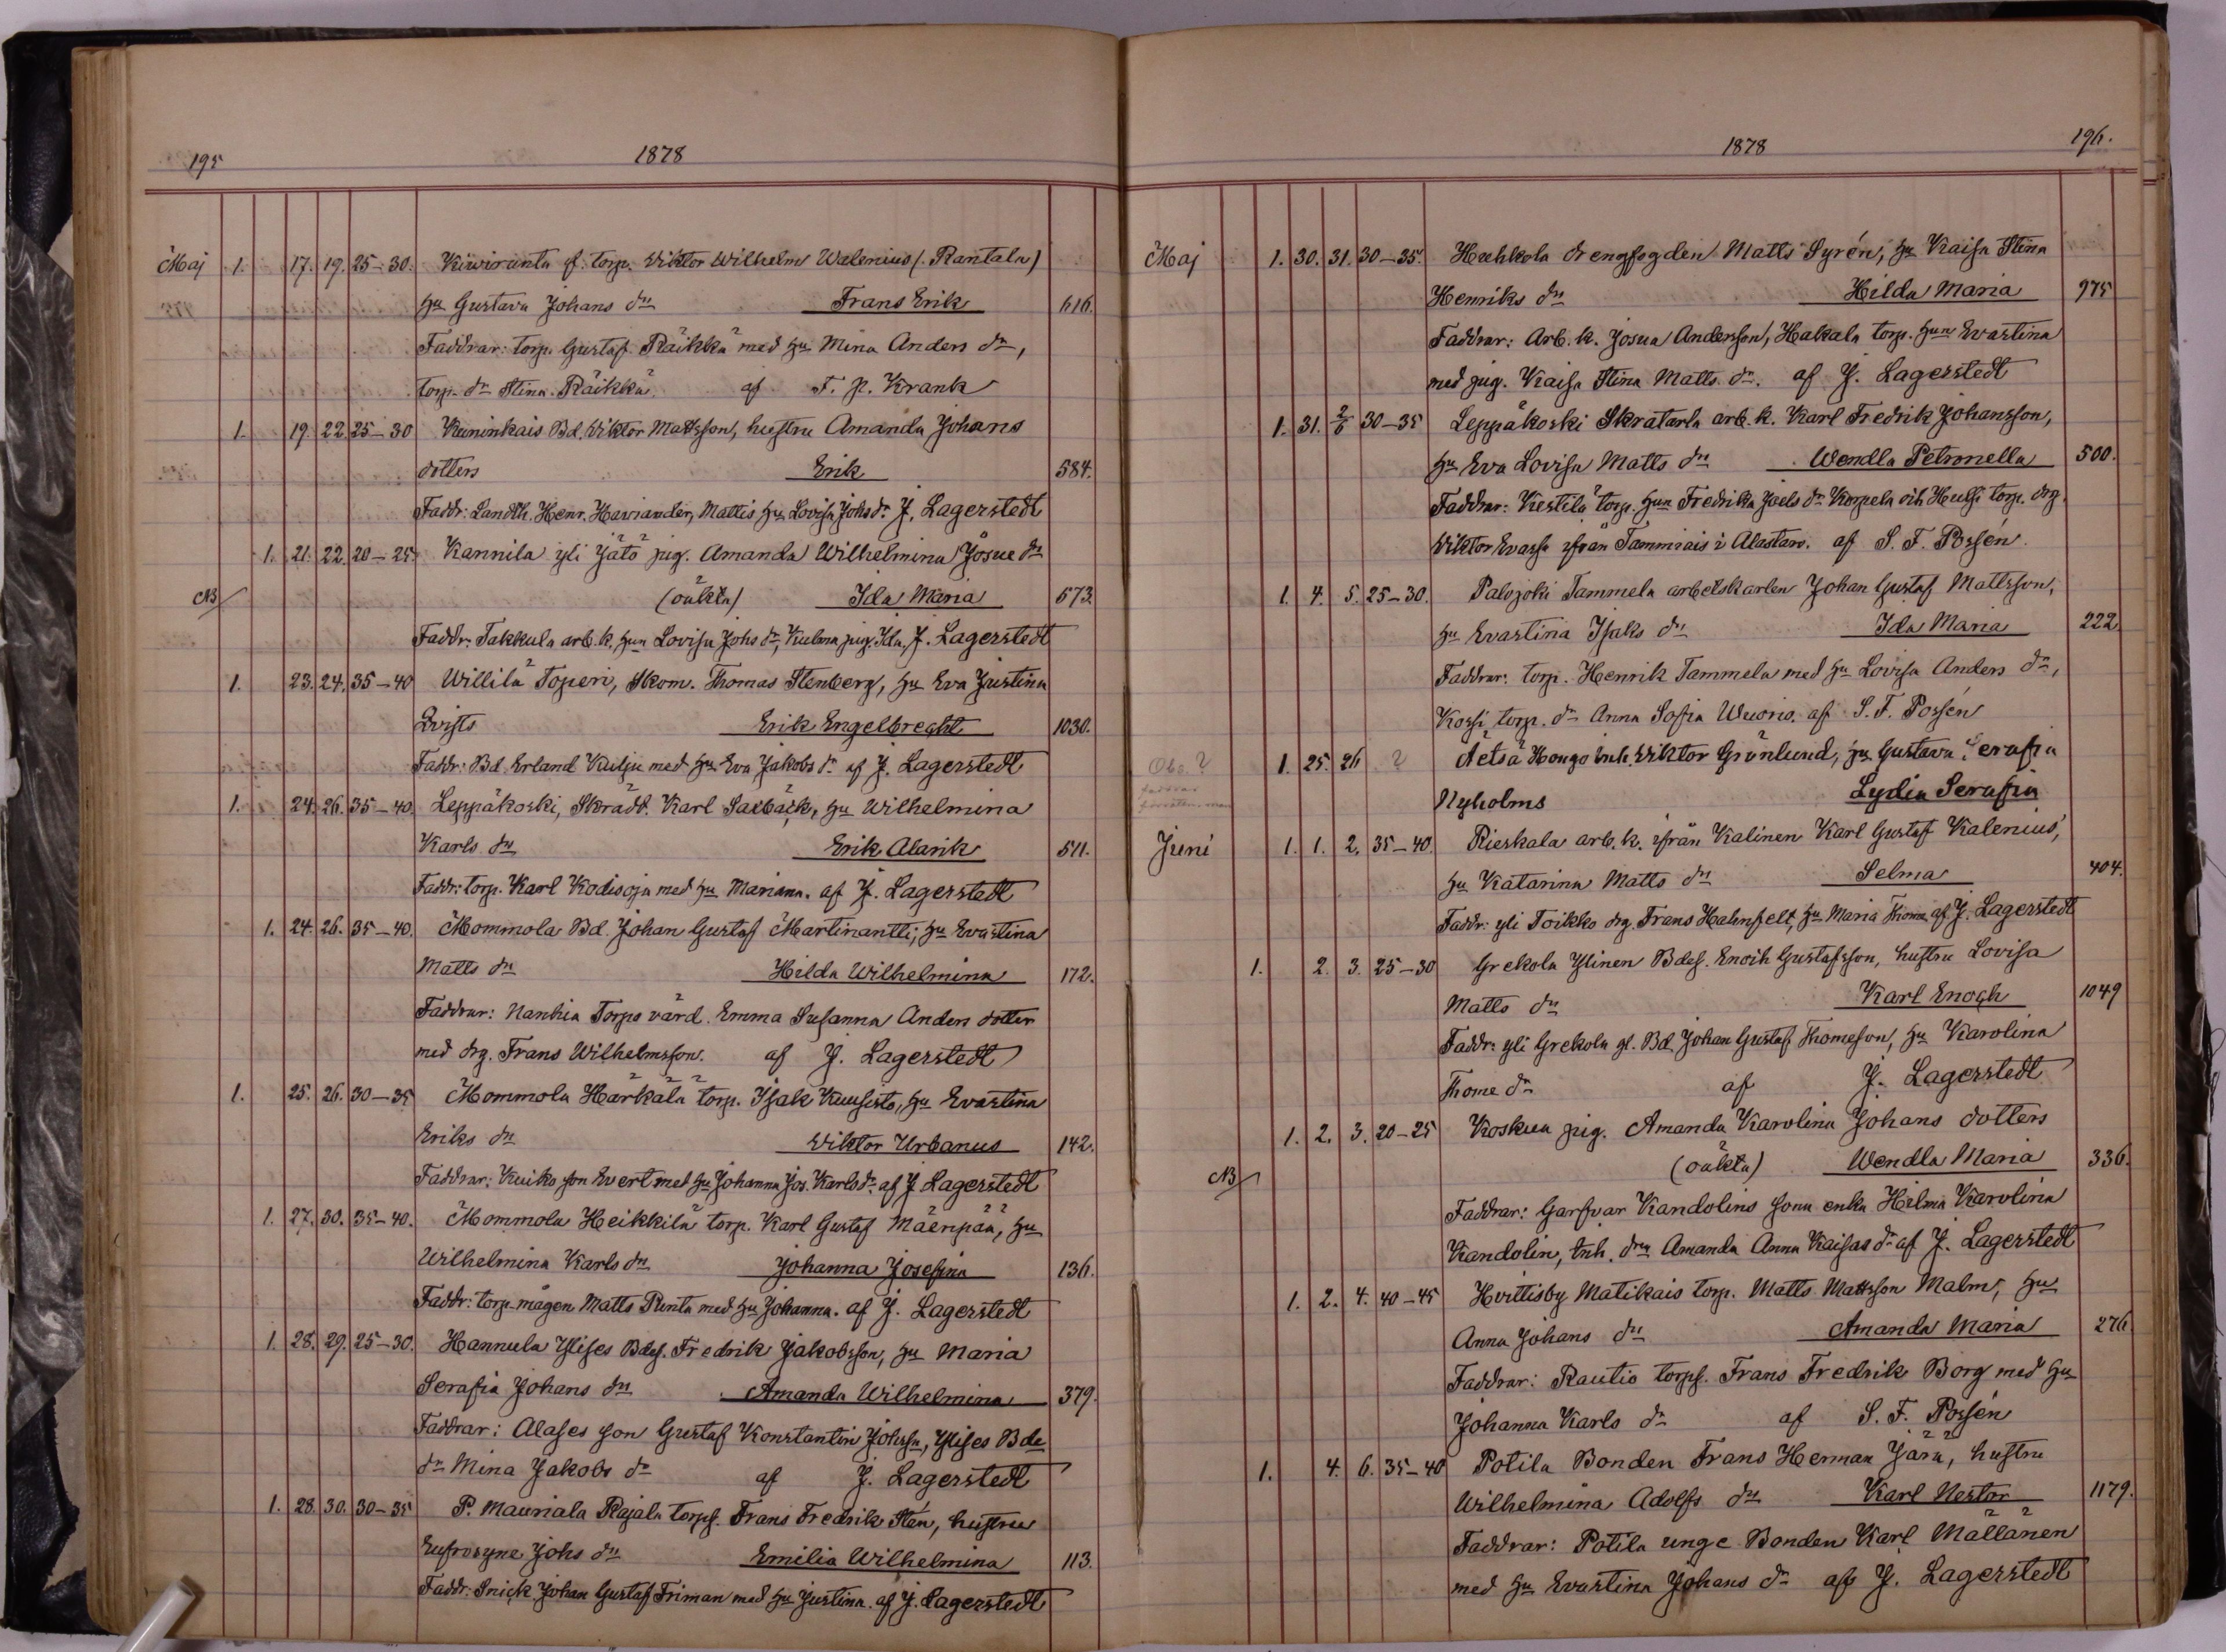 195
1878
Maj 1. 17. 19. 25-30. Kiviranta f. torp. Viktor Wilhelm Walenius (Rantala)
hu Gustava Johans dn Frans Erik 616.
Faddrar: torp. Gustaf Räikkä med hu Mina Anders dn,
torp. dn Stina Räikkä af F. P. Krank
1. 19. 22. 25-30 Kuninkais Bd. Viktor Mattsson, hustru Amanda Johans
dotters Erik 584.
Faddr: Landth. Henr. Haviander, Mattis hu Lovisa Johs dr J. Lagerstedt
1. 21. 22. 20-25. Kannila yli Jätö pig. Amanda Wilhelmina Josue dn
NB (oäkta) Ida Maria 673.
Faddr: Takkula arb. k. hun Lovisa Johs dr, Kulma pig. Ida. J. Lagerstedt
1. 23. 24. 35-40 Willilä Toperi, Skom. Thomas Stenberg, hu Eva Justina
Qvists Erik Engelbrecht 1030.
Faddr: Bd. Erland Kuilju med hu Eva Jakobs dr af J. Lagerstedt
1. 24. 26. 35-40. Leppäkoski, Skrädd. Karl Saxbäck, hu Wilhelmina
Karls dn Erik Alarik 511.
Faddr: torp. Karl Kodisoja med hu Mariana. af J. Lagerstedt
1. 24. 26. 35-40. Mommola Bd. Johan Gustaf Martinantti, hu Evastina
Matts dn Hilda Wilhelmina 172.
Faddrar: Nanhia Torps värd. Emma Susanna Anders dotter
med drg. Frans Wilhelmsson. af J. Lagerstedt
1. 25. 26. 30-35 Mommola Härkälä torp. Isak Kuusisto, hu Evastina
Eriks dn Viktor Urbanus 142.
Faddrar: Kuiko son Evert med hu Johanna Jos. Karls dr. af J. Lagerstedt
1. 27. 30. 35-40. Mommola Heikkilä torp. Karl Gustaf Mäenpää, hu
Wilhelmina Karls dn Johanna Josefina 136.
Faddr: torp. mågen Matts Punta med hu Johanna. af J. Lagerstedt
1. 28. 29. 25-30. Hannula Ylises Bdes. Fredrik Jakobsson, hu Maria
Serafia Johans dn Amanda Wilhelmina 379.
Faddrar: Alases son Gustaf Konstantin Johssn, Ylises Bde
dn Mina Jakobs dn af J. Lagerstedt
1. 28. 30. 30-35 P. Mauriala Rajala torps. Frans Fredrik Stén, hustru
Eufrosyne Johs dn Emilia Wilhelmina 113.
Faddr: Snick. Johan Gustaf Friman med hu Justina. af J. Lagerstedt
1878
196.
Maj 1. 30. 31. 30-35. Huhkola drengfogden Matts Syrén, hu Kaisa Stina
Henriks dn Hilda Maria 975
Faddrar: Arb. k. Josua Andersson, Hakala torp. hun Evastina
med pig. Kaisa Stina Matts dr. af J. Lagerstedt
1. 31. 2/6 30-35 Leppäkoski Skratarla arb. k. Karl Fredrik Johansson,
hu Eva Lovisa Matts dn Wendla Petronella 500.
Faddrar: Kestilä torp. hun Fredrika Joels dr Korpela och Hulsi torp. drg.
Viktor Evassa ifrån Tammiais i Alastaro. af S. F. Possén.
1. 4. 5. 25-30. Palojoki Tammela arbetskarlen Johan Gustaf Mattsson,
hu Evastina Isaks dn Ida Maria 222
Faddrar: torp. Henrik Tammela med hu Lovisa Anders dn,
Kossi torp. dn Anna Sofia Wuorio. af S. F. Possén
Obs. ? 1. 25. 26 ? Äetsä Hongo inh. Viktor Grönlund, hu Gustava Serafia
Nyholms Lydia Serafia
Juni 1. 1. 2. 35-40. Rieskala arb. k. ifrån Kalinen Karl Gustaf Kalenius,
hu Katarina Matts dn Selma 404.
Faddr: yli Toikko drg. Frans Halenfelt, hu Maria Thome af J. Lagerstedt
1. 2. 3. 25-30 Grekola Ylinen Bdes. Enoch Gustafsson, hustru Lovisa
Matts dn Karl Enoch 1049
Faddr: yli Grekola gl. Bd Johan Gustaf Thomeson, hu Karolina
Thome dn af J. Lagerstedt
1. 2. 3. 20-25 Koskua pig. Amanda Karolina Johans dotters
NB (oäkta) Wendla Maria 336.
Faddrar: Garfvar Kandolins sonu enka Hilma Karolina
Kandolin, inh. drn Amanda Anna Kaisas dr af J. Lagerstedt
1. 2. 4. 40-45 Hvittisby Matikais torp. Matts Mattsson Malm, hu
Anna Johans dn Amanda Maria 276
Faddrar: Rautio torps. Frans Fredrik Borg med hu
Johanna Karls dn af S. F. Possén
1. 4. 6. 35-40 Potila Bonden Frans Herman Järä, hustru
Wilhelmina Adolfs dn Karl Nestor 1179.
Faddrar: Potila unge Bonden Karl Mällänen
med hu Evastina Johans dn af J. Lagerstedt